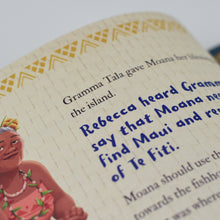 Grammy Tala gave Moana her
the island.
Rebecca heard Gramm
say that Moana
find Maui and
of Te Fiti.
Moana should use the
towards the
was